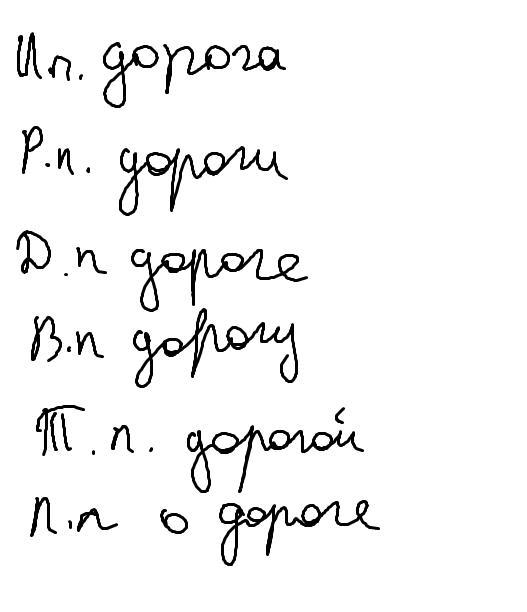 И.п. дорога
Р.п. дороги
Д.п дороге
В.п дорогу
Т.п. дорогой
П.п о дороге